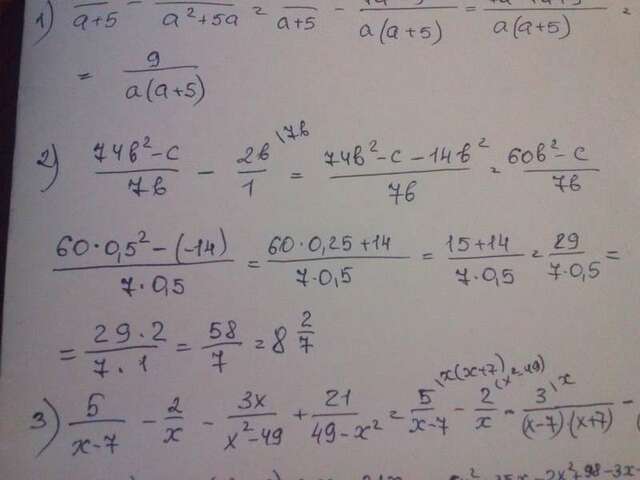 1) a+5 - / a²+5a = / a+5 - / a(a+5) = / a(a+5) =
= 9/(a(a+5))
2) (74b²-c)/(7b) - 2b/1 \7b = (74b²-c-14b²)/(7b) = (60b²-c)/(7b)
(60·0,5²-(-14))/(7·0,5) = (60·0,25+14)/(7·0,5) = (15+14)/(7·0,5) = 29/(7·0,5) =
= (29·2)/(7·1) = 58/7 = 8 2/7
3) 5/(x-7) - 2/x - 3x/(x²-49) + 21/(49-x²) = 5/(x-7) \x(x+7) - 2/x \(x²-49) - 3/((x-7)·(x+7)) \x -
-2x²+98-3x-